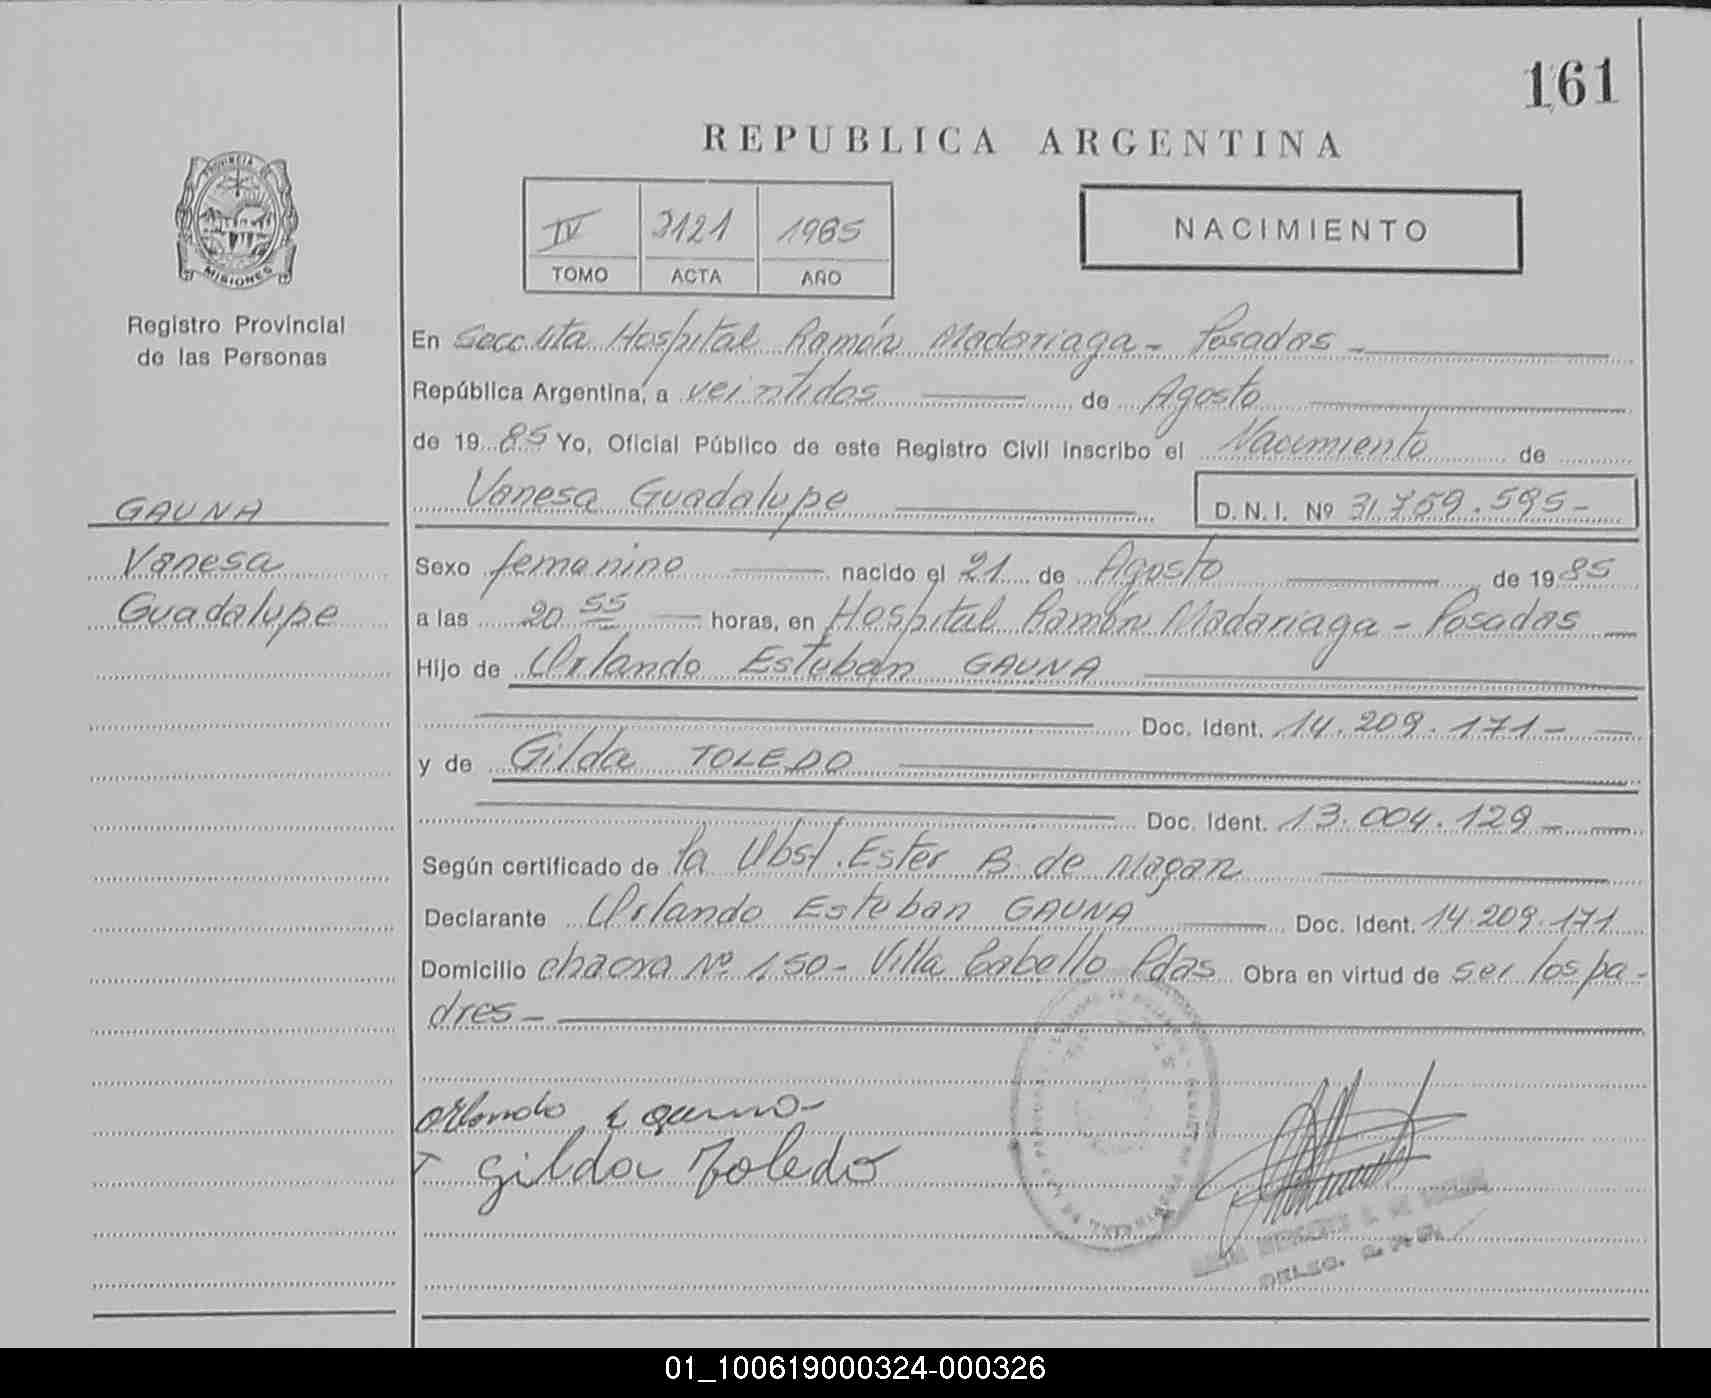 161
REPUBLICA ARGENTINA
PROVINCIA
MISIONES
Registro Provincial
de las Personas
IV 3121 1985
TOMO ACTA AÑO
NACIMIENTO
En Secc 4ta Hospital Ramón Madariaga - Posadas -
República Argentina, a veintidos de Agosto
de 1985 Yo, Oficial Público de este Registro Civil inscribo el Nacimiento de
Vanesa Guadalupe D.N.I. Nº 31.759.595-
GAUNA
Vanesa
Guadalupe
Sexo femenino nacido el 21 de Agosto de 1985
a las 20 55 horas, en Hospital Ramón Madariaga - Posadas
Hijo de Orlando Esteban GAUNA
Doc. Ident. 14.209.171-
y de Gilda TOLEDO
Doc. Ident. 13.004.129-
Según certificado de la Obst. Ester B de Magan
Declarante Orlando Esteban GAUNA Doc. Ident. 14.209.171
Domicilio chacra Nº 150- Villa Cabello Pdas Obra en virtud de ser los pa-
dres-
Orlando E gauna-
Gilda Toledo
DELEG.
01_100619000324-000326